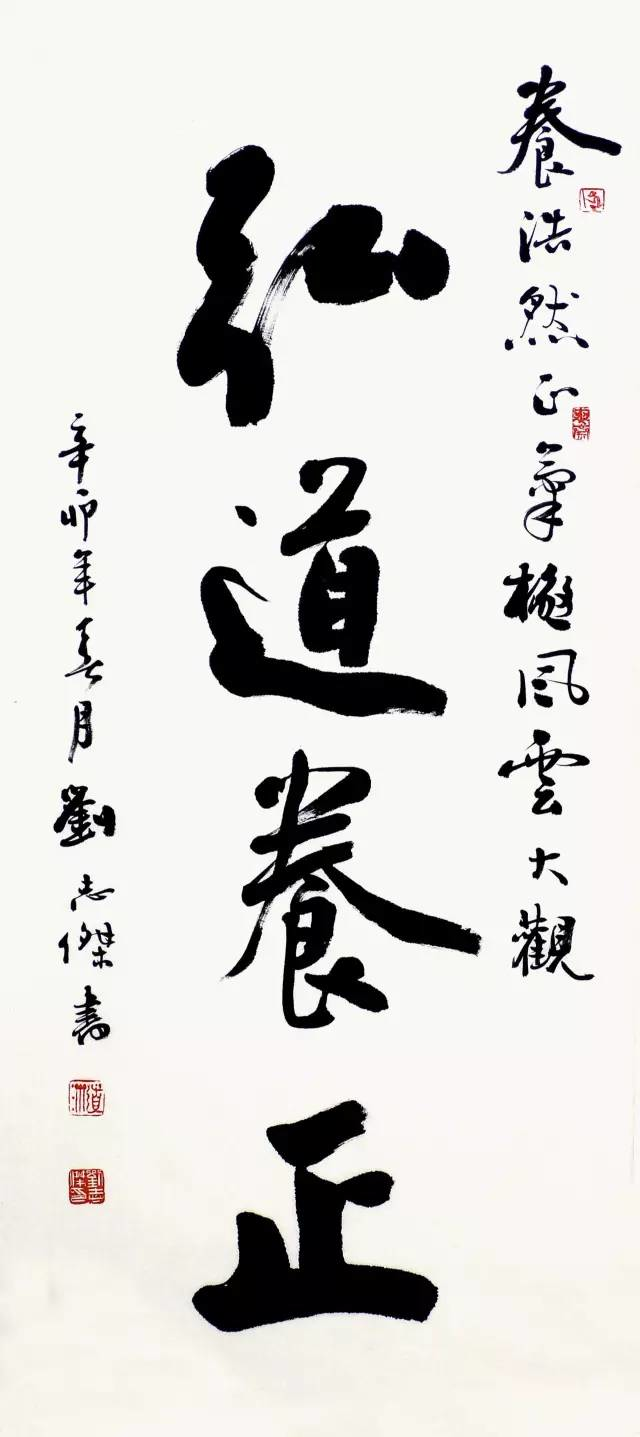 養浩然正氣極風雲大觀
弘道養正
辛卯年春月劉志傑書